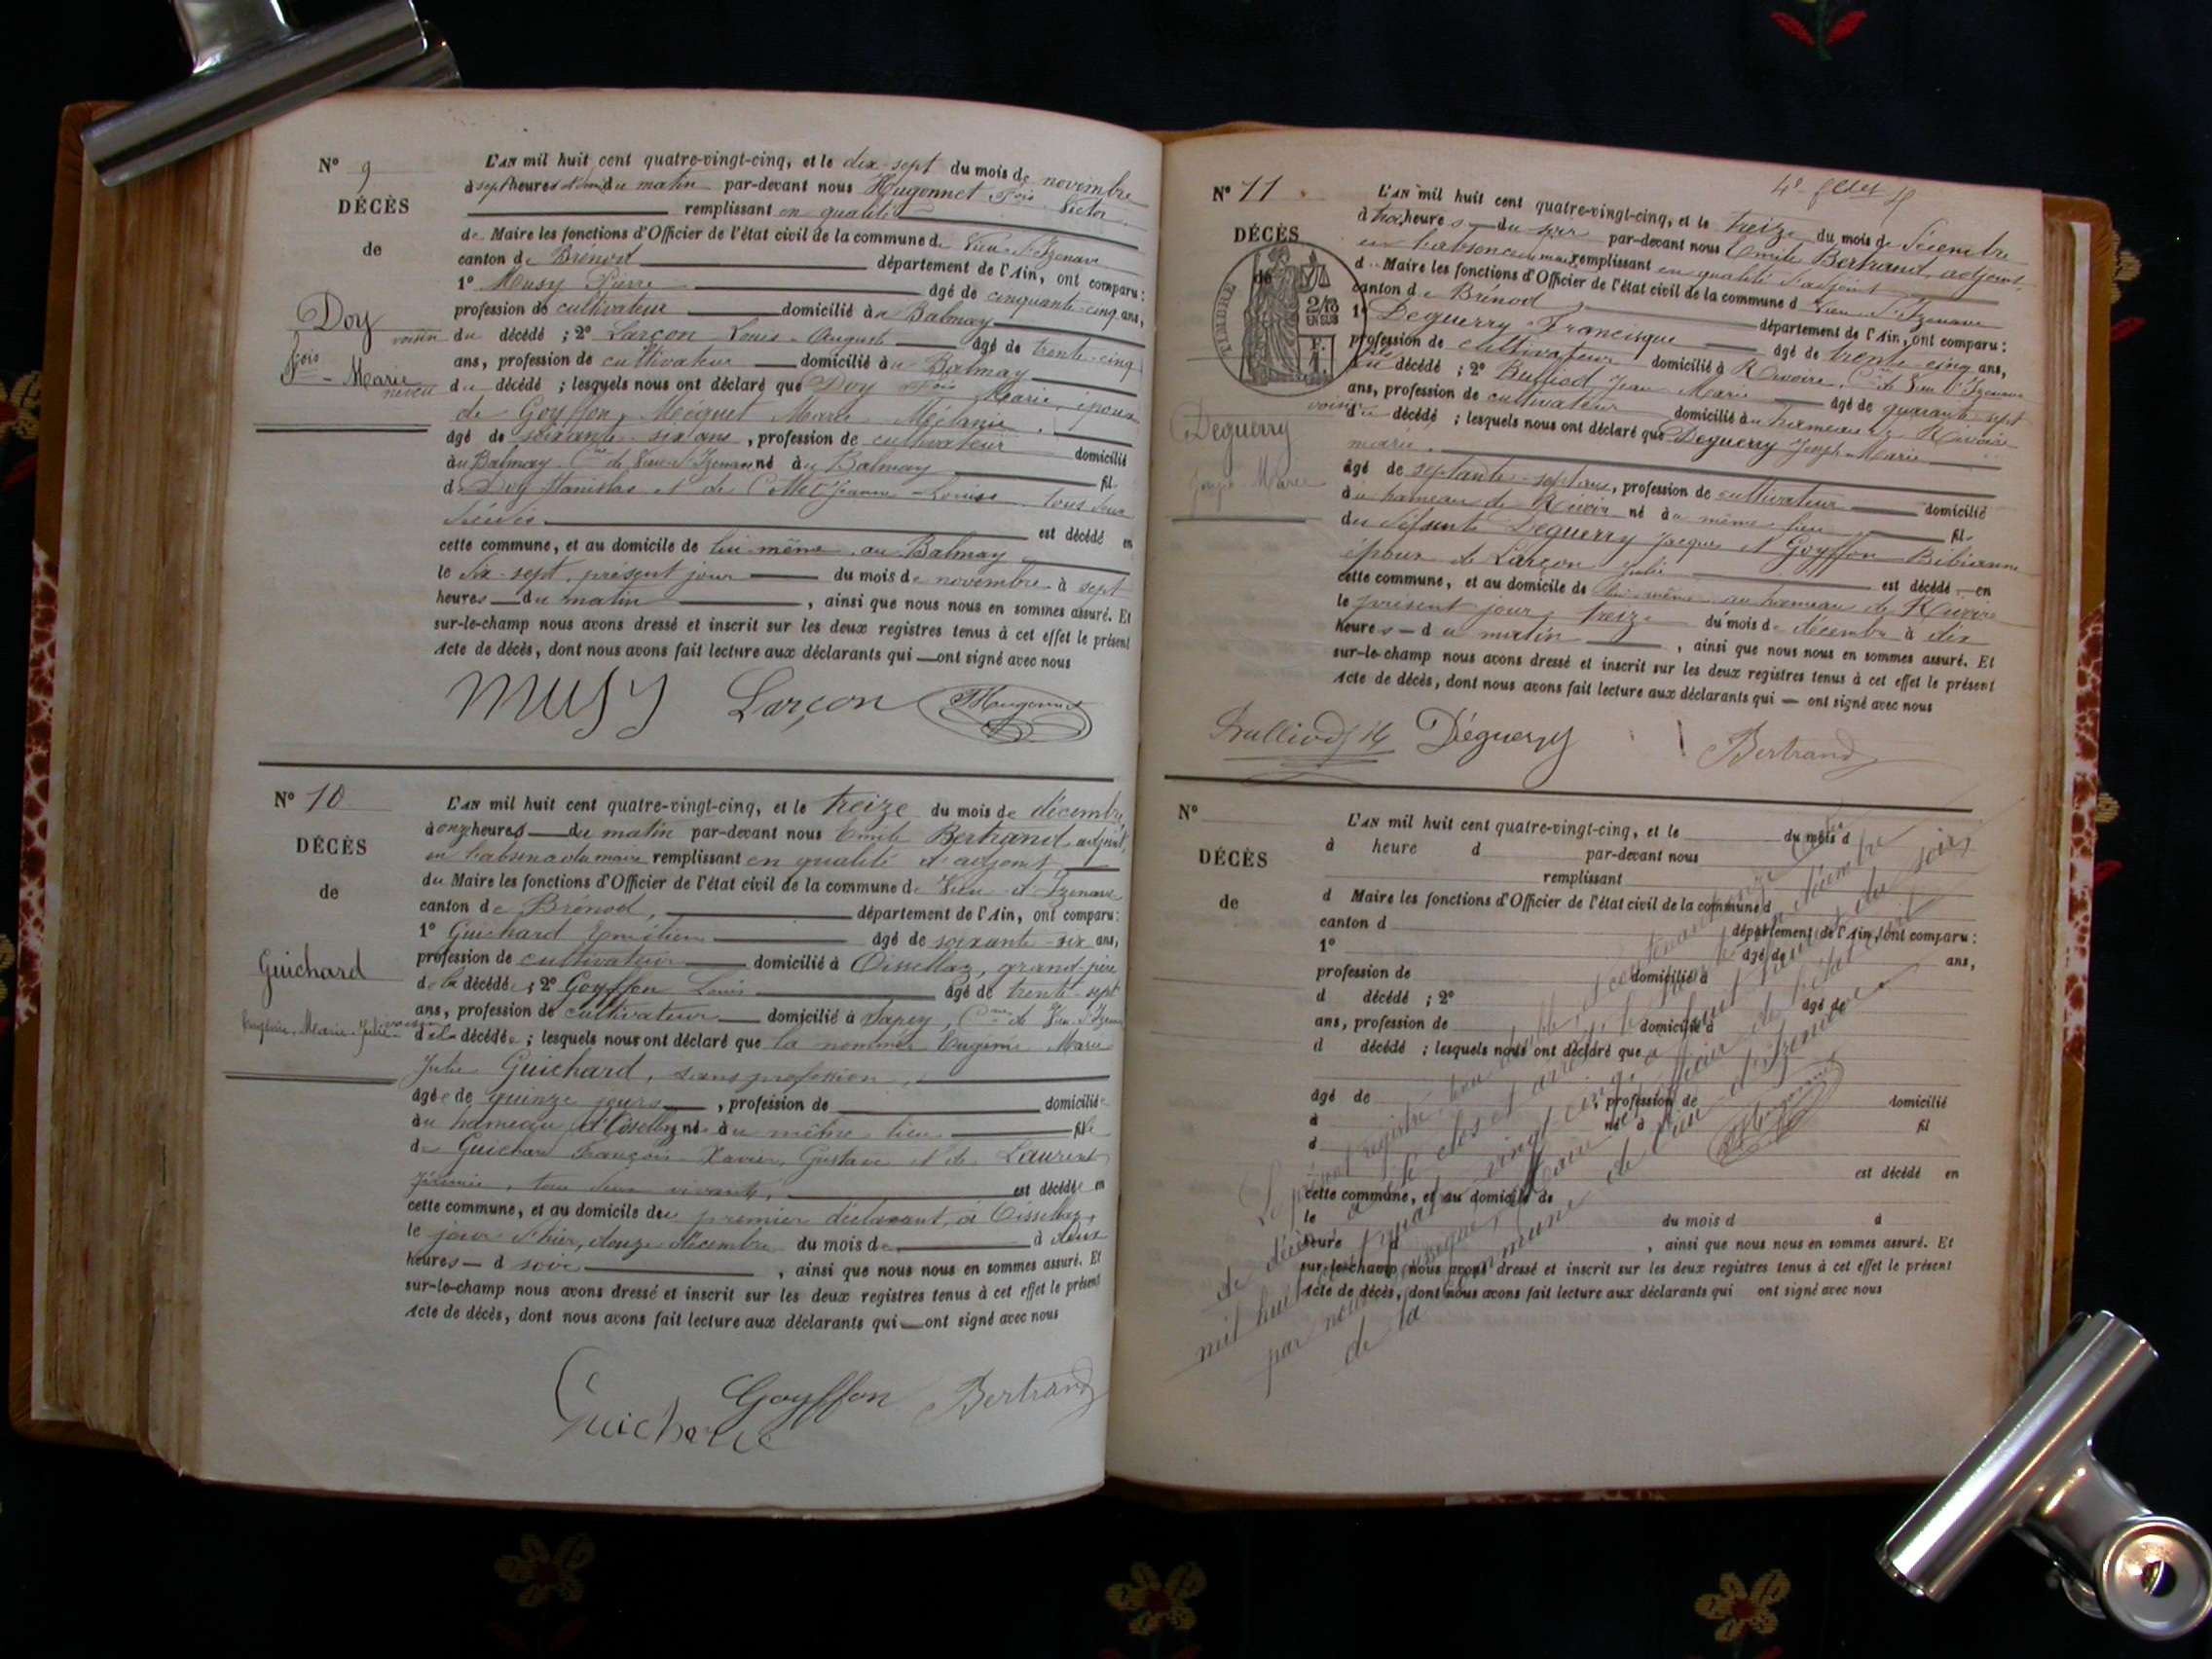 N° 9
DÉCÈS
de
Doy
fois - Marie
L'AN mil huit cent quatre-vingt-cinq, et le dix-sept du mois de novembre
à sept heures et demi du matin par-devant nous Hugonnet fois Victor
remplissant en qualité
de Maire les fonctions d'Officier de l'état civil de la commune de Vieu-d'Izenave
canton de Brénod département de l'Ain, ont comparu :
1° Musy Pierre âgé de cinquante-cinq ans,
profession de cultivateur domicilié au Balmay
voisin du décédé ; 2° Larçon Louis-Auguste âgé de trente-cinq
ans, profession de cultivateur domicilié au Balmay
neveu du décédé ; lesquels nous ont déclaré que Doy fois Marie, époux
de Goyffon Marie Mélanie,
âgé de soixante-six ans, profession de cultivateur domicilié
au Balmay Cne de Vieu-d'Izenave né au Balmay fil
de Doy Stanislas et de Collet Jeanne-Louise tous deux
décédés est décédé en
cette commune, et au domicile de lui-même, au Balmay
le dix-sept, présent jour du mois de novembre à sept
heures du matin, ainsi que nous nous en sommes assuré. Et
sur-le-champ nous avons dressé et inscrit sur les deux registres tenus à cet effet le présent
Acte de décès, dont nous avons fait lecture aux déclarants qui ont signé avec nous
Musy Larçon Hugonnet
N° 10
DÉCÈS
de
Guichard
Eugénie-Marie-Julie
L'AN mil huit cent quatre-vingt-cinq, et le treize du mois de décembre
à onze heures du matin par-devant nous Emile Bertrand, adjoint,
en l'absence du maire remplissant en qualité d'adjoint
du Maire les fonctions d'Officier de l'état civil de la commune de Vieu-d'Izenave
canton de Brénod, département de l'Ain, ont comparu :
1° Guichard âgé de soixante-six ans,
profession de cultivateur domicilié à Oissellaz, grand-père
de la décédée ; 2° Goyffon Louis âgé de trente-sept
ans, profession de cultivateur domicilié à Sapey, Cne de Vieu-d'Izenave
voisin de la décédée ; lesquels nous ont déclaré que la nommée Eugénie Marie
Julie Guichard, sans profession,
âgée de quinze jours, profession de domiciliée
au hameau d'Oissellaz née au même lieu fille
de Guichard François-Xavier, Gustave et de Laurent
tous deux vivants, est décédée en
cette commune, et au domicile du premier déclarant, à Oissellaz,
le jour d'hier, douze décembre du mois de à deux
heures d soir, ainsi que nous nous en sommes assuré. Et
sur-le-champ nous avons dressé et inscrit sur les deux registres tenus à cet effet le présent
Acte de décès, dont nous avons fait lecture aux déclarants qui ont signé avec nous
Guichard Goyffon Bertrand
N° 11
DÉCÈS
de
TIMBRE
2/10 EN SUS
Deguerry
Joseph-Marie
L'AN mil huit cent quatre-vingt-cinq, et le treize du mois de décembre
à trois heures du soir par-devant nous Emile Bertrand, adjoint,
en l'absence du maire remplissant en qualité d'adjoint
d Maire les fonctions d'Officier de l'état civil de la commune d Vieu-d'Izenave
canton de Brénod département de l'Ain, ont comparu :
1° Deguerry Francisque âgé de trente-cinq ans,
profession de cultivateur domicilié à Rivoire, Cne de Vieu-d'Izenave
fils du décédé ; 2° Bulliod Jean Marie âgé de quarante-sept
ans, profession de cultivateur domicilié au hameau de Rivoire
voisin du décédé ; lesquels nous ont déclaré que Deguerry Joseph-Marie
marié,
âgé de septante-sept ans, profession de cultivateur domicilié
au hameau de Rivoire né au même lieu fil
des défunts Deguerry Jacques et Goyffon Bibianne
époux de Larçon Julie est décédé en
cette commune, et au domicile de lui-même au hameau de Rivoire
le présent jour, treize du mois de décembre à dix
heures du matin, ainsi que nous nous en sommes assuré. Et
sur-le-champ nous avons dressé et inscrit sur les deux registres tenus à cet effet le présent
Acte de décès, dont nous avons fait lecture aux déclarants qui ont signé avec nous
Bulliod JM Déguerry Bertrand
N°
DÉCÈS
de
L'AN mil huit cent quatre-vingt-cinq, et le du mois d
à heure d par-devant nous
remplissant
d Maire les fonctions d'Officier de l'état civil de la commune d
canton d département de l'Ain, ont comparu :
1° âgé de ans,
profession de domicilié à
d décédé ; 2° âgé de
ans, profession de domicilié à
d décédé ; lesquels nous ont déclaré que
âgé de, profession de domicilié
à né à fil
d
est décédé en
cette commune, et au domicile de
le du mois d à
heure d, ainsi que nous nous en sommes assuré. Et
sur-le-champ nous avons dressé et inscrit sur les deux registres tenus à cet effet le présent
Acte de décès, dont nous avons fait lecture aux déclarants qui ont signé avec nous
Le présent registre contenant onze actes
de décès a été clos et arrêté le décembre
mil huit cent quatre-vingt-cinq, à huit heures du soir,
par nous Maire et officier de l'état civil
de la commune de Vieu-d'Izenave.
Hugonnet